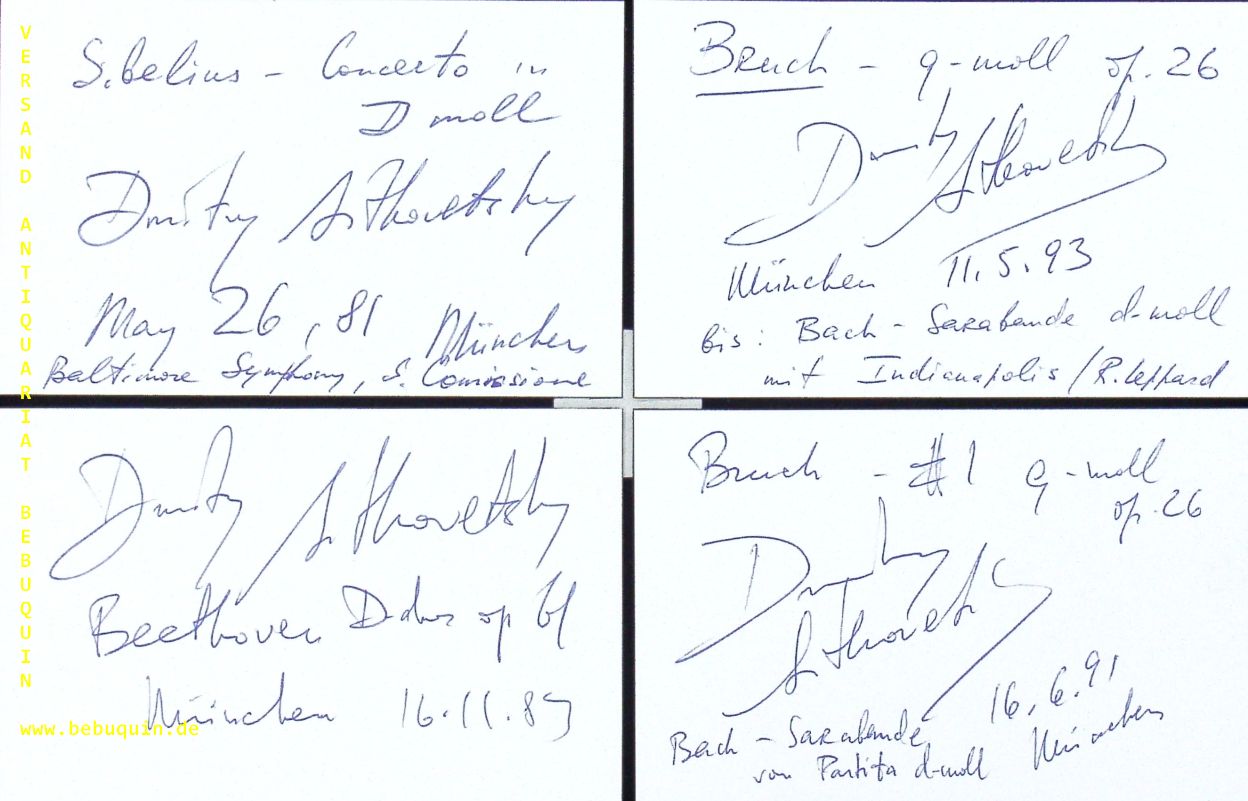 Sibelius – Concerto in
D moll
Dmitry Sitkovetsky
May 26, 81 München
Baltimore Symphony, S. Comissiona
Bruch – g-moll op. 26
Dmitry Sitkovetsky
München 11.5.93
bis: Bach – Sarabande d-moll
mit Indianapolis / R. Leppard
Dmitry Sitkovetsky
Beethoven D-dur op 61
München 16.11.89
Bruch – #1 g-moll
op. 26
Dmitry
Sitkovetsky
16.6.91
Bach – Sarabande München
von Partita d-moll
VERSAND ANTIQUARIAT BEBUQUIN
www.bebuquin.de